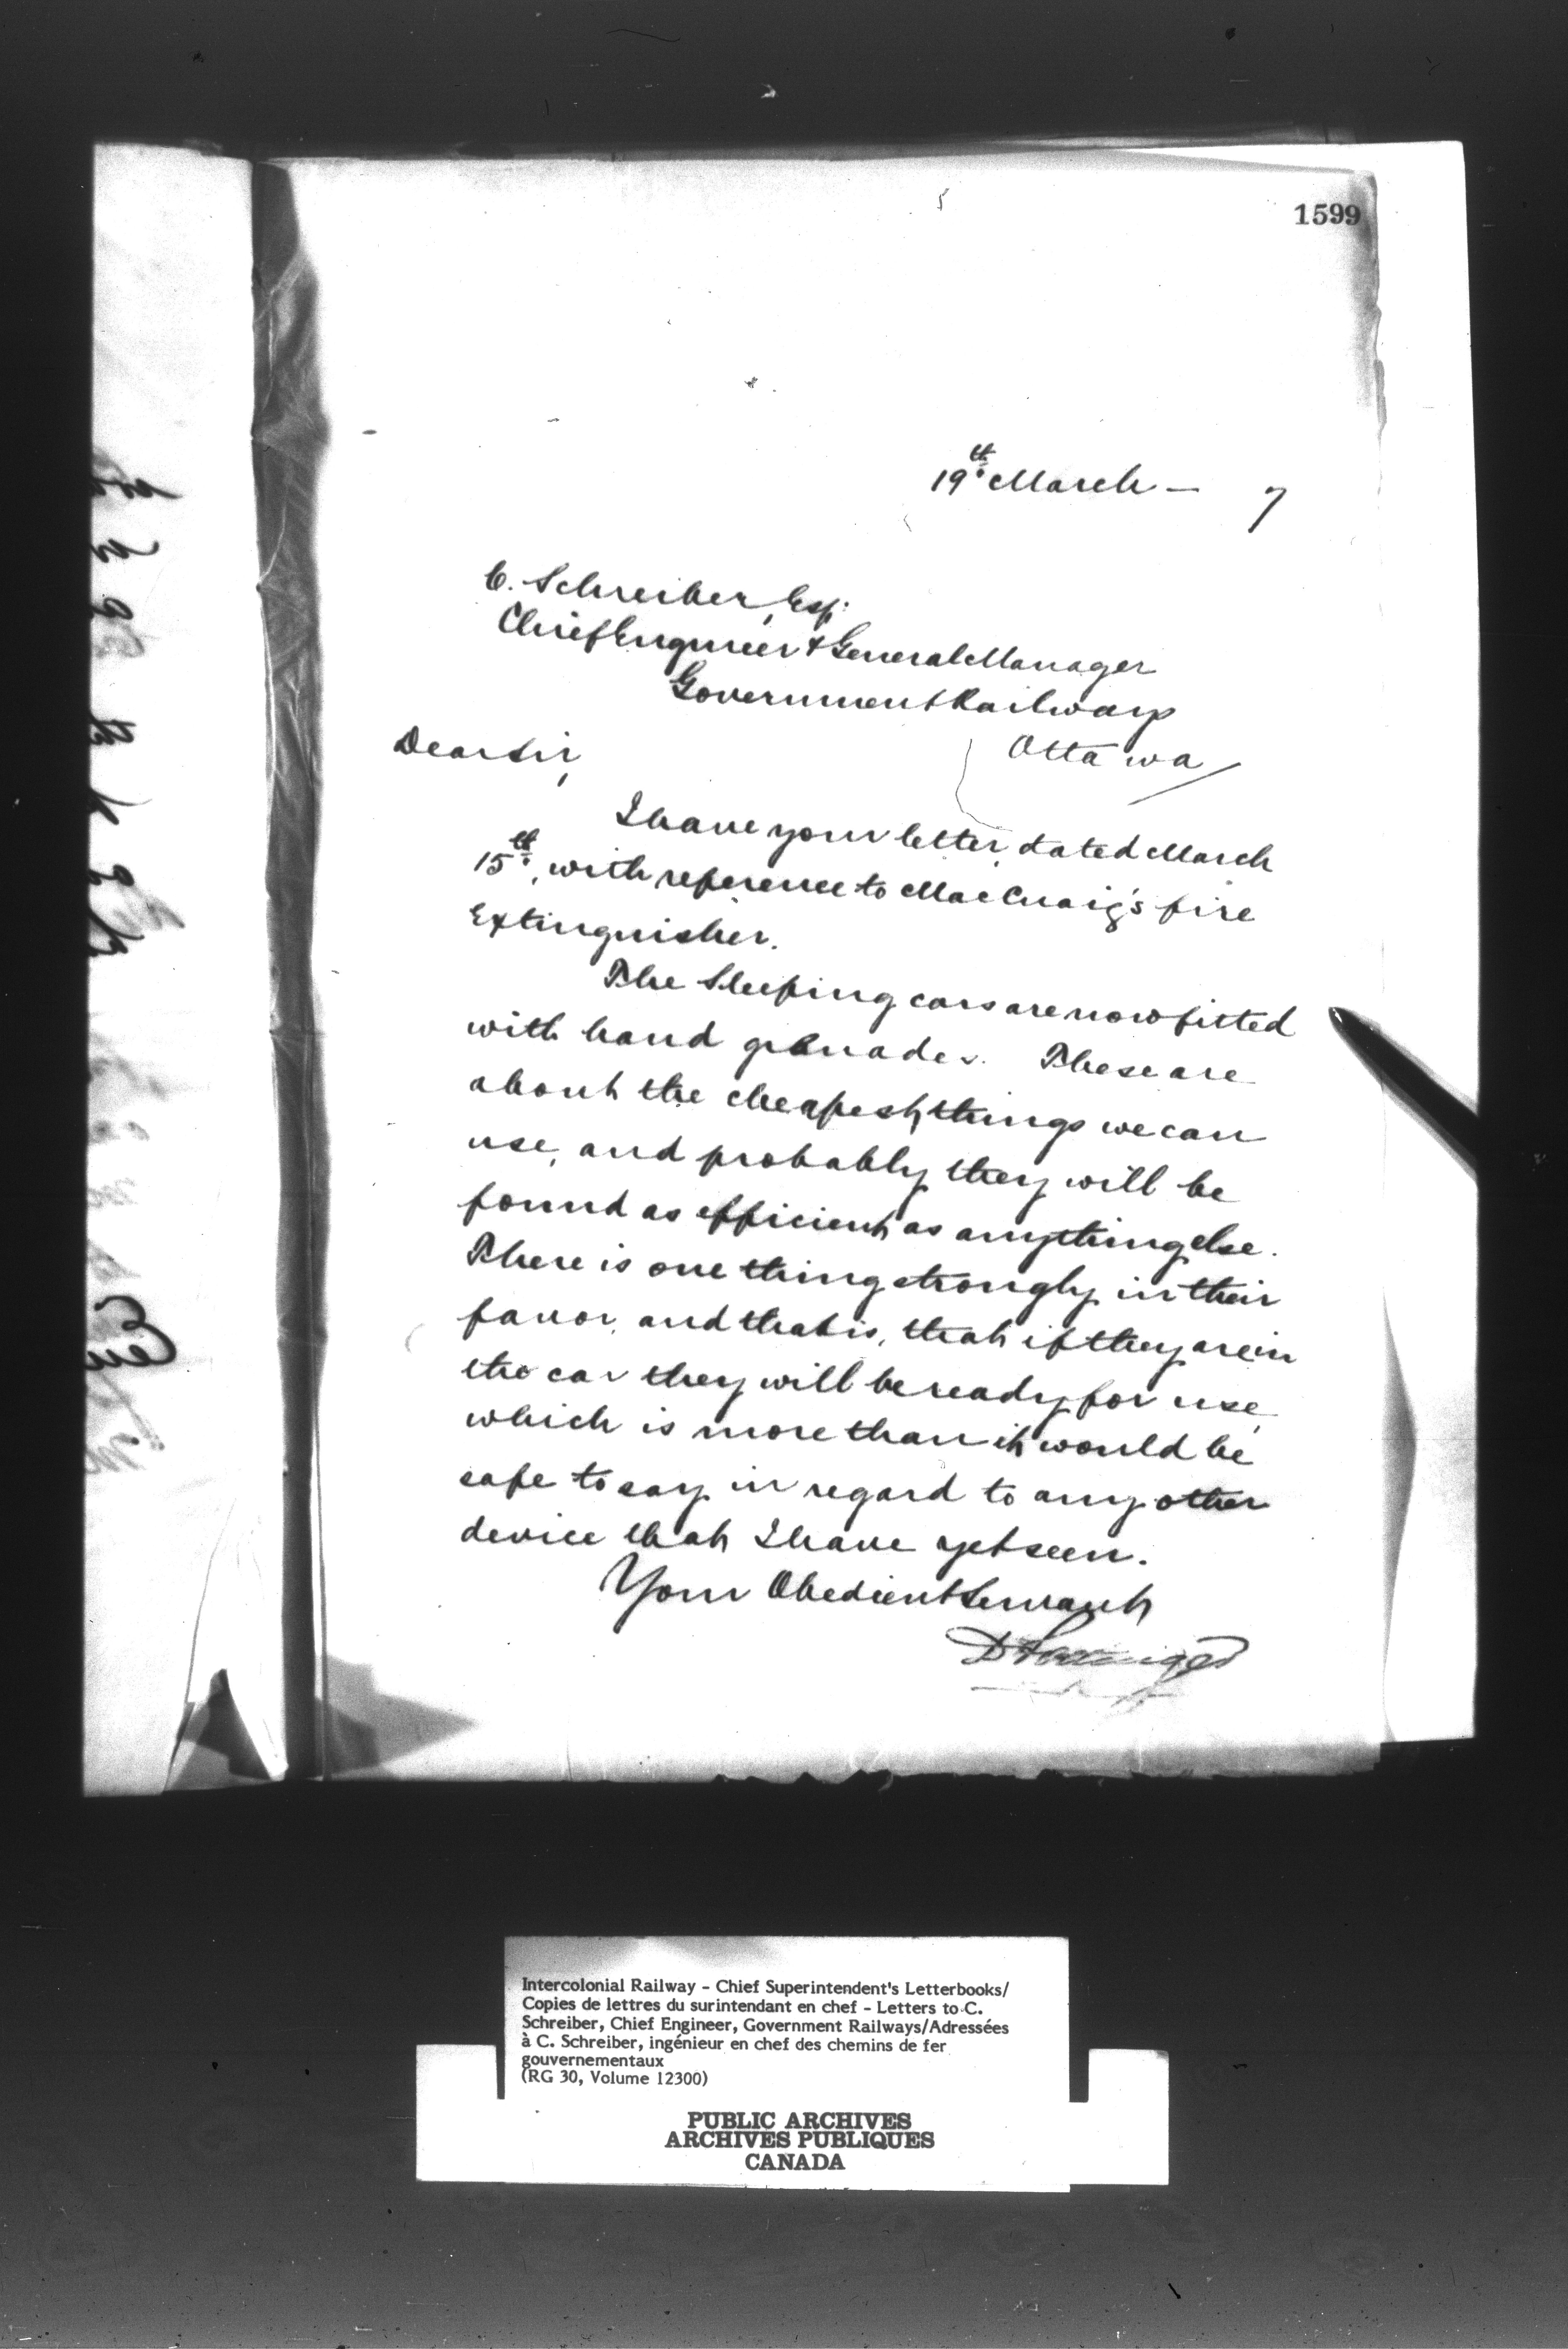 1599
19th March – 7
C. Schreiber, Esq:
Chief Engineer & General Manager
Government Railways
Ottawa
Dear Sir,
I have your letter, dated March
15th, with reference to MacCuaig's fire
Extinguisher.
The Sleeping cars are now fitted
with hand grenades. These are
about the cheapest things we can
use, and probably they will be
found as efficient as anything else.
There is one thing strongly in their
favor, and that is, that if they are in
the car they will be ready for use,
which is more than it would be
safe to say in regard to any other
device that I have yet seen.
Your Obedient Servant
D Pottinger
Intercolonial Railway – Chief Superintendent's Letterbooks/
Copies de lettres du surintendant en chef – Letters to C.
Schreiber, Chief Engineer, Government Railways/Adressées
à C. Schreiber, ingénieur en chef des chemins de fer
gouvernementaux
(RG 30, Volume 12300)
PUBLIC ARCHIVES
ARCHIVES PUBLIQUES
CANADA